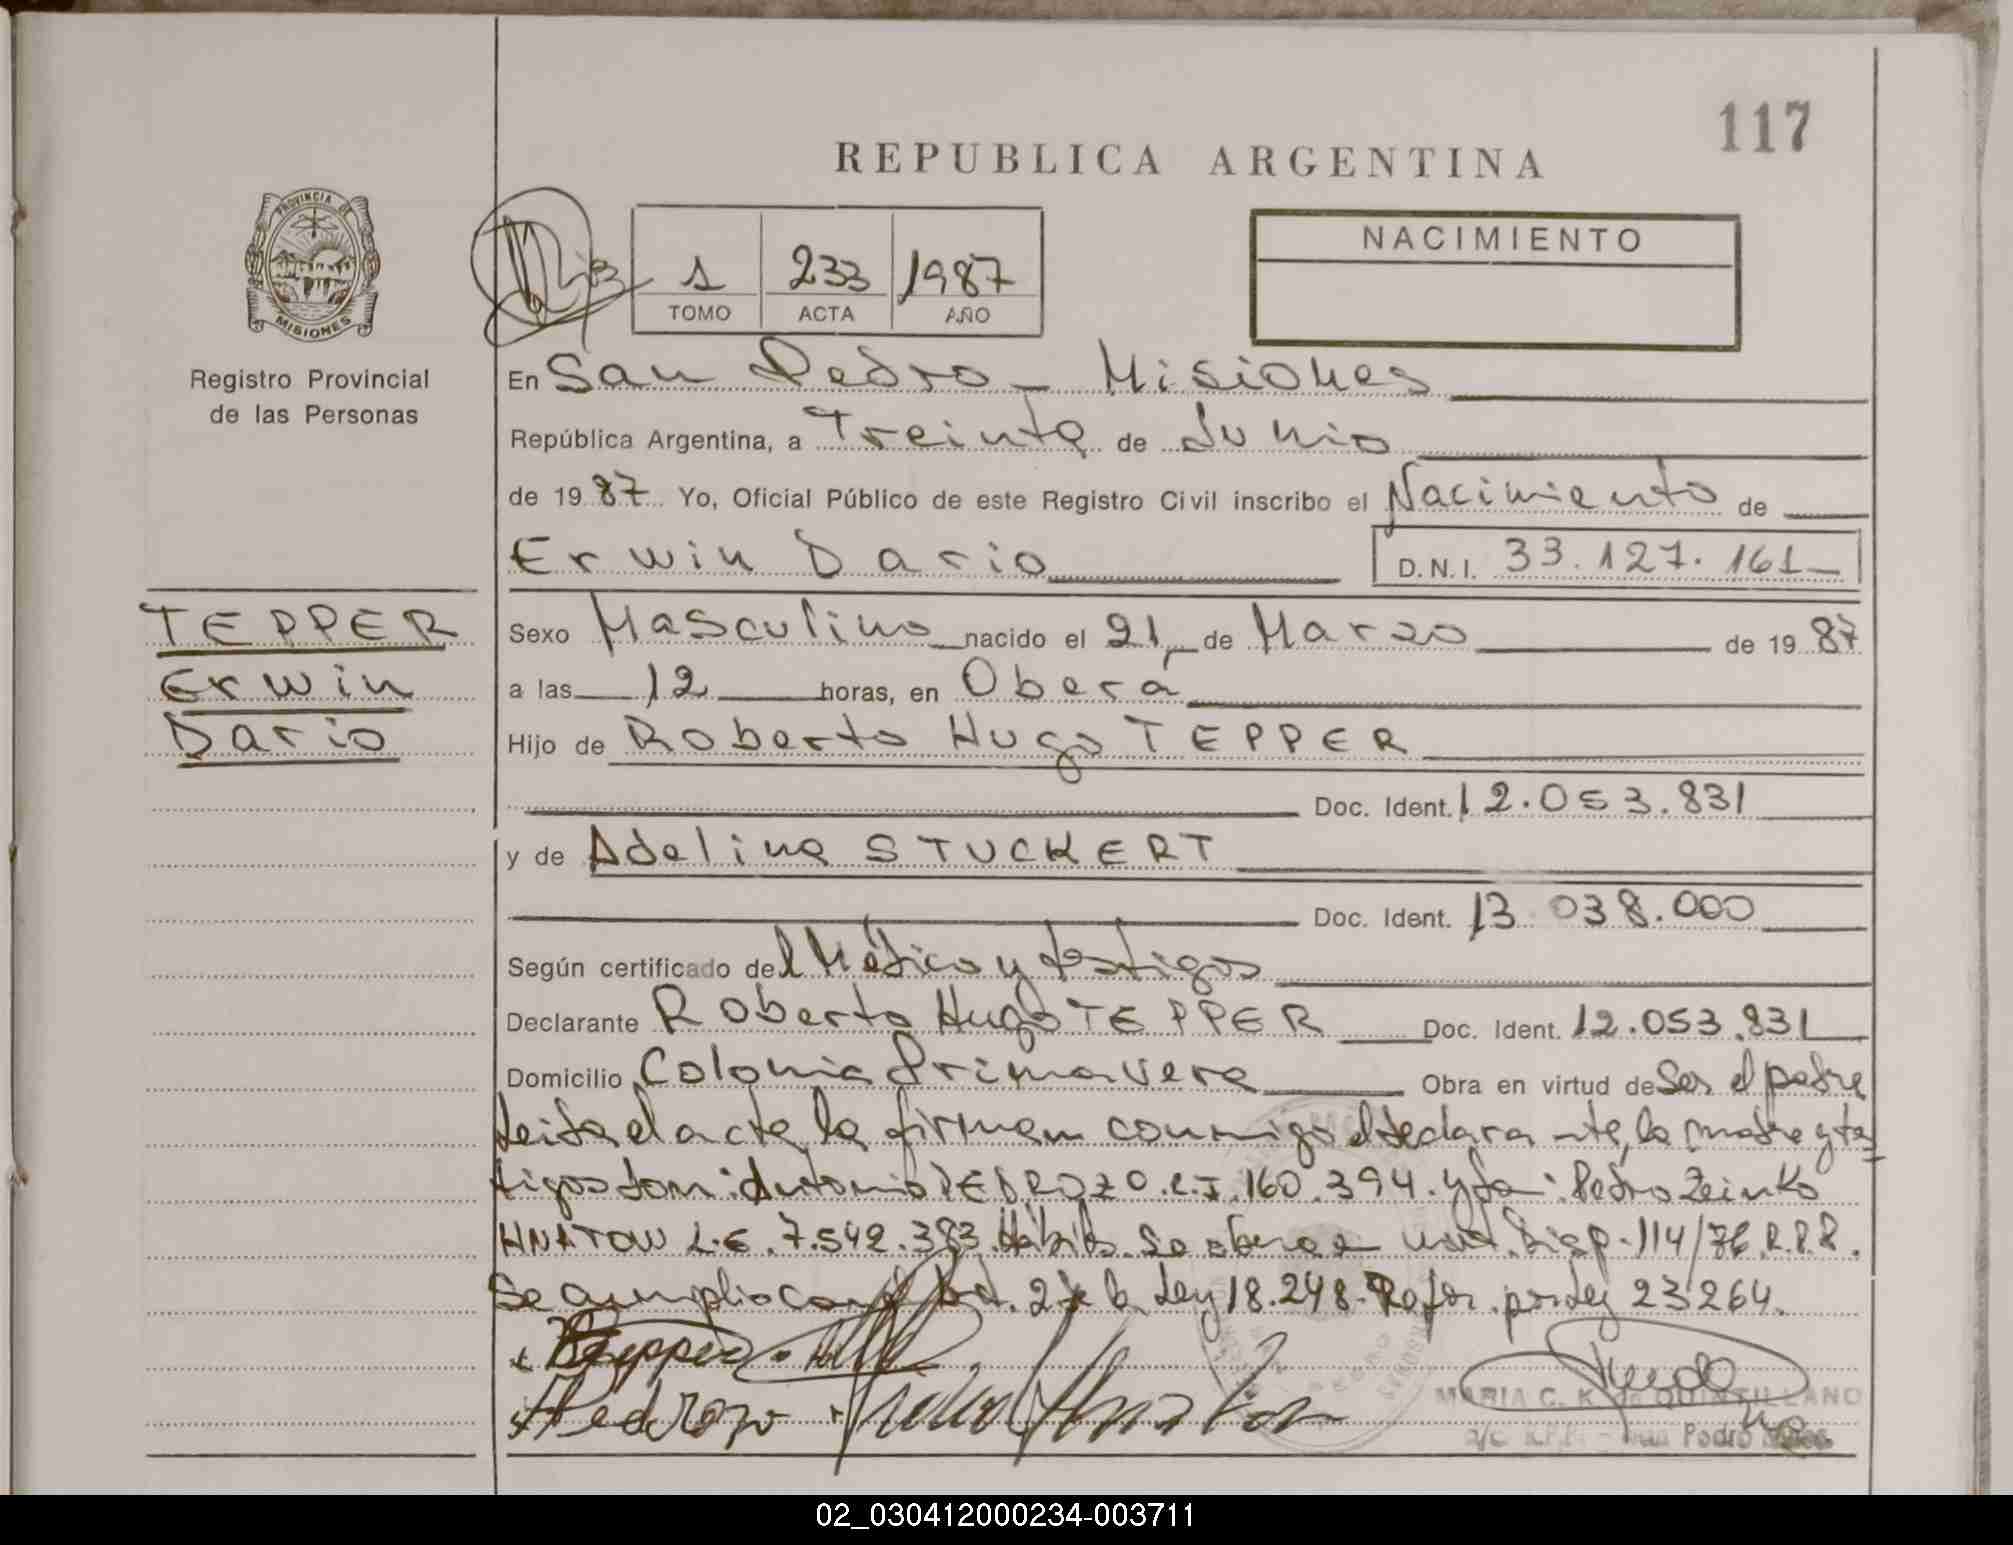 117
REPUBLICA ARGENTINA
PROVINCIA DE
MISIONES
Registro Provincial
de las Personas
1 233 1987
TOMO ACTA AÑO
NACIMIENTO
En San Pedro - Misiones
República Argentina, a Treinta de Junio
de 19 87 Yo, Oficial Público de este Registro Civil inscribo el Nacimiento de
Erwin Dario D.N.I. 33.127.161
TEPPER
Erwin
Dario
Sexo Masculino nacido el 21 de Marzo de 19 87
a las 12 horas, en Obera
Hijo de Roberto Hugo TEPPER
Doc. Ident. 12.053.831
y de Adelina STUCKERT
Doc. Ident. 13.038.000
Según certificado del Médico y testigos
Declarante Roberto Hugo TEPPER Doc. Ident. 12.053.831
Domicilio Colonia Primavera Obra en virtud de Ser el padre
Leida el acta, la firman conmigo el declarante, la madre y tes
tigos don: Antonio PEDROZO C.I. 160.394. y don: Pedro Zeinko
HNATOW L.E. 7.542.383. Disp. 114/76 R.P.P.
Se amplio con el Art. 2 de la Ley 18.248. Refor. por Ley 23264.
Pedrozo
MARIA C. K. de QUINTILLANO
a/c R.P.P. - San Pedro Mnes.
02_030412000234-003711